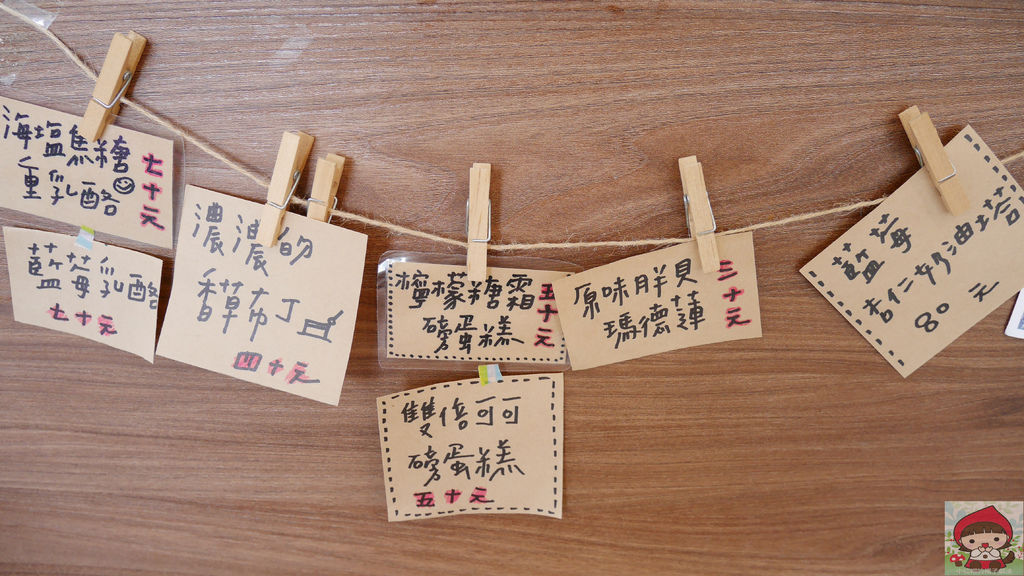 海塩焦糖
重乳酪
七十元
藍莓乳酪
七十元
濃濃的
香草布丁
四十元
檬糖霜
磅蛋糕
五十元
雙倍可可
磅蛋糕
五十元
原味胖貝
瑪德蓮
三十元
藍莓
杏仁奶油塔
80元